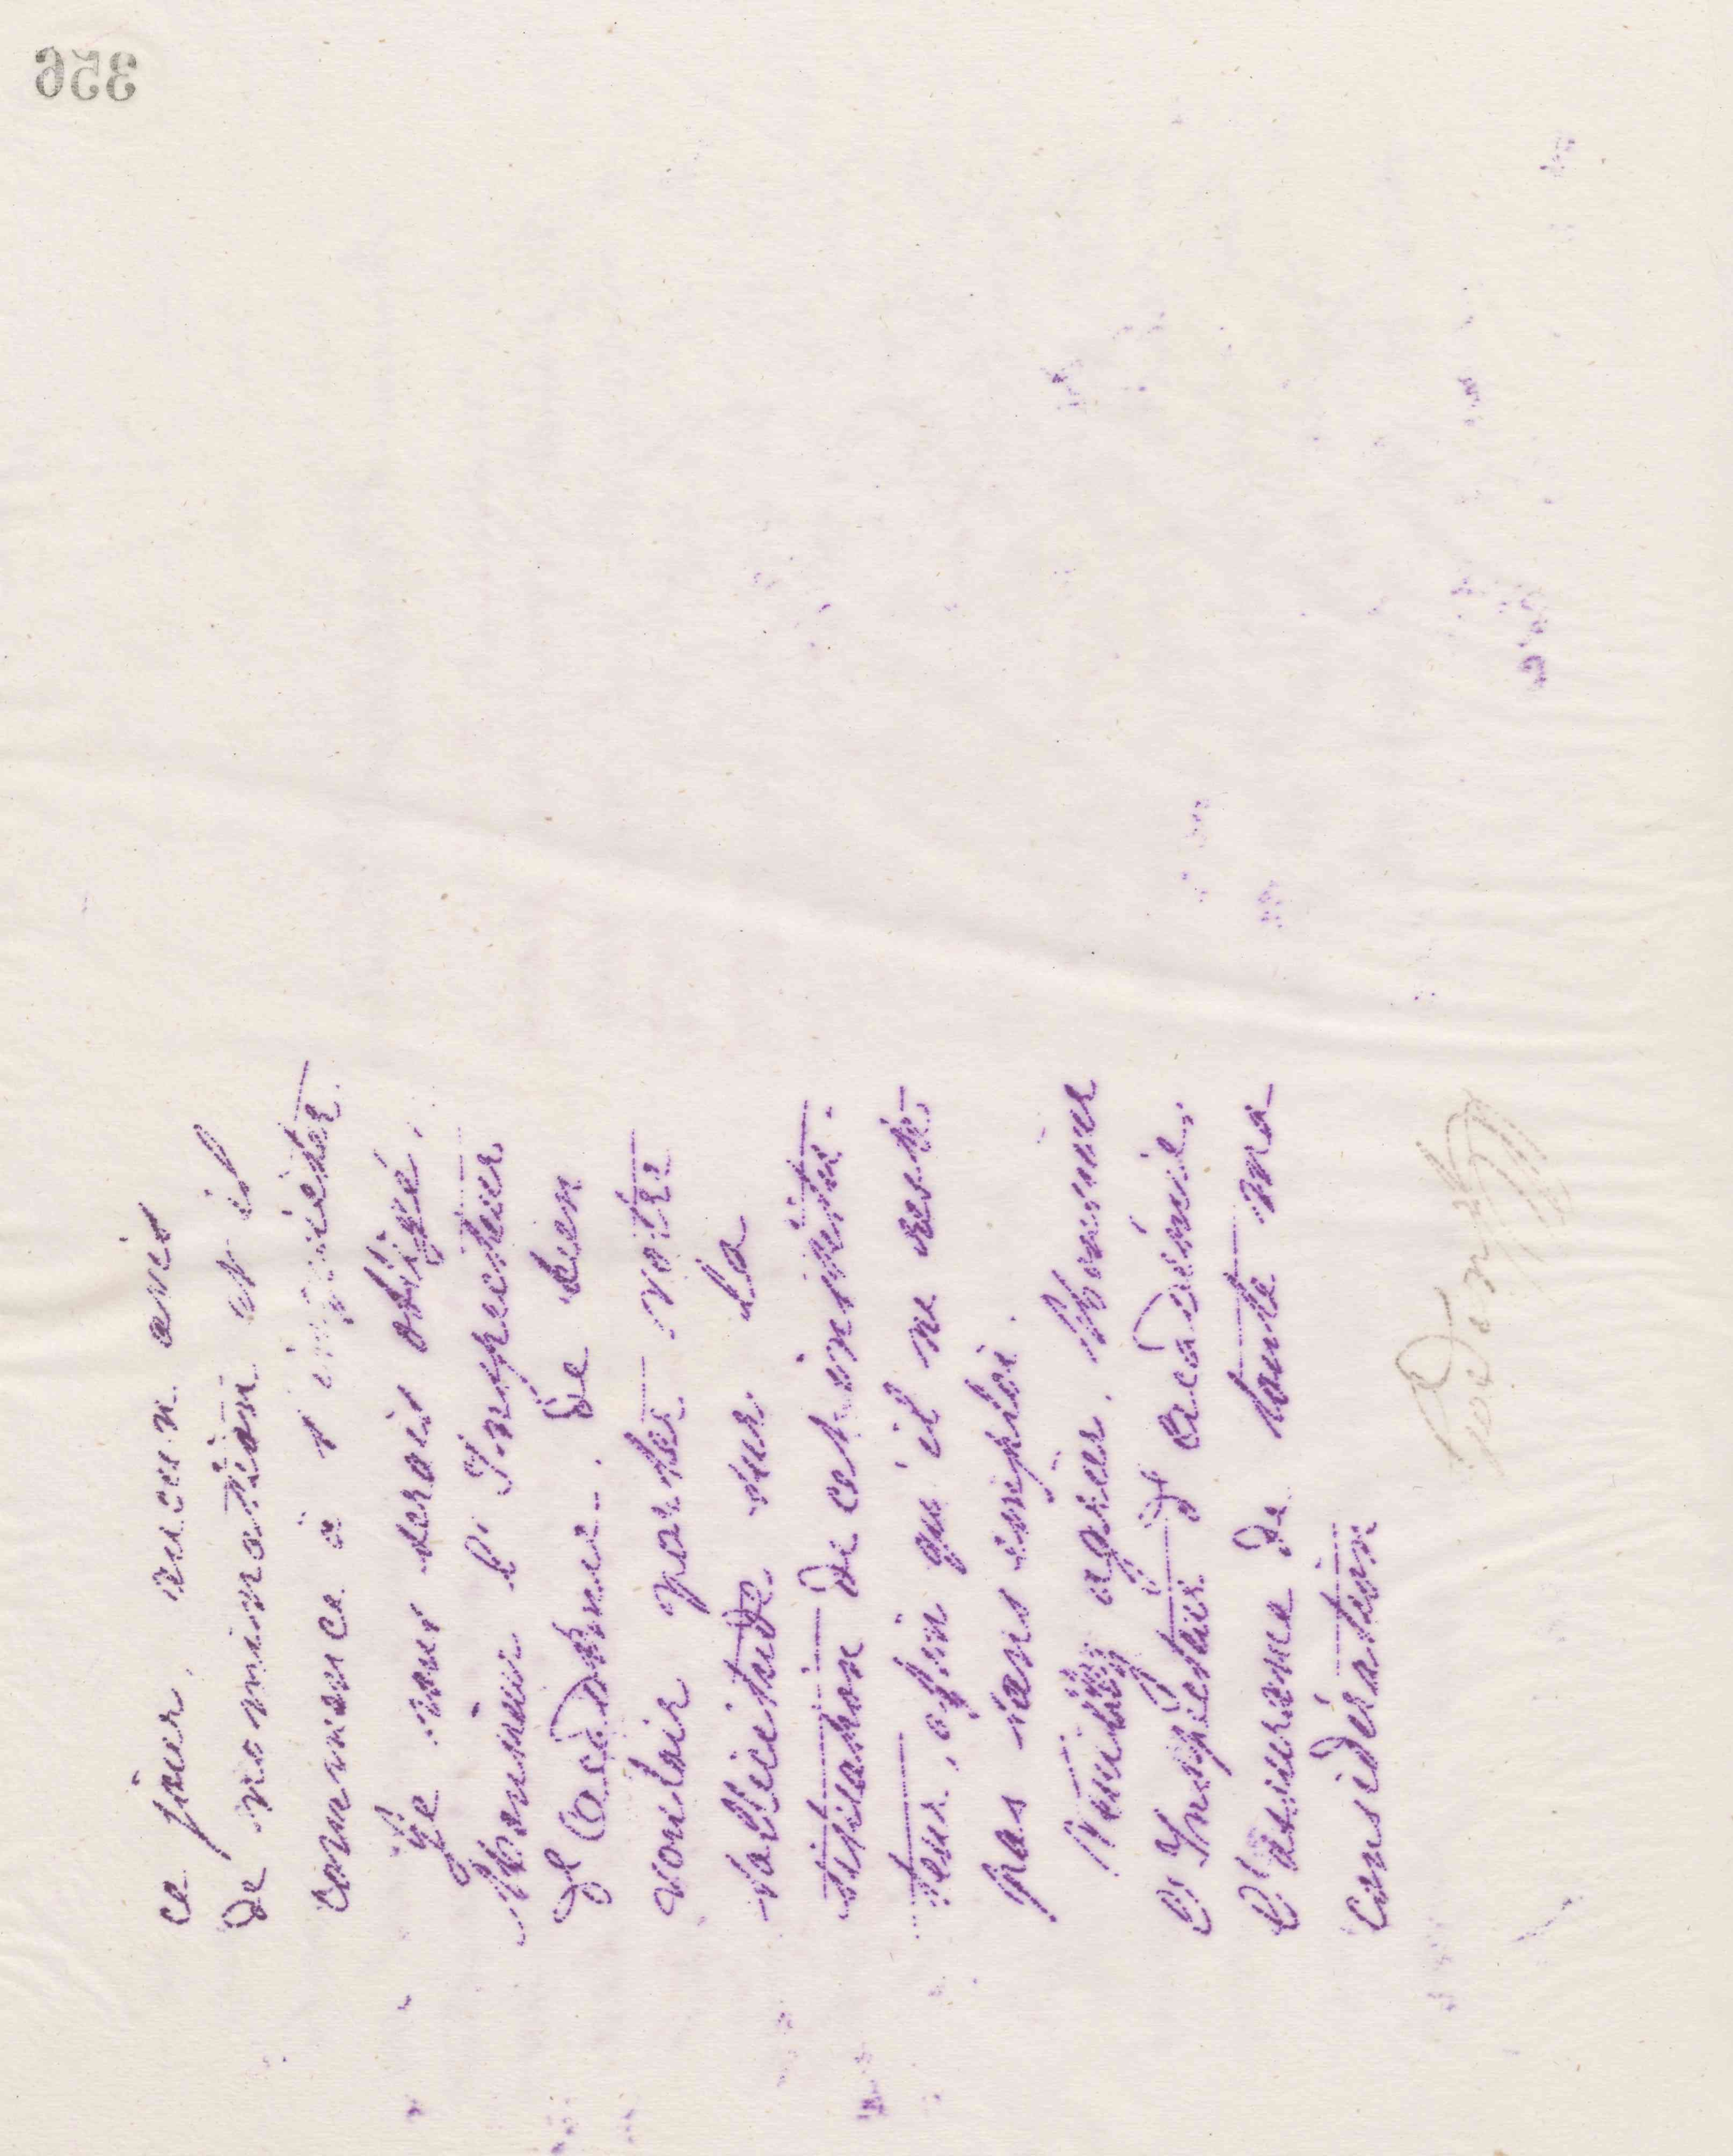 356
ce jour, aucun avis
de nomination et il
commence à s'inquiéter.
Je vous serais obligé,
Monsieur l'Inspecteur
d'Académie, de bien
vouloir porter votre
sollicitude sur la
situation de cet institu-
teur, afin qu'il ne reste
pas sans emploi.
Veuillez agréer, Monsieur
l'Inspecteur d'Académie,
l'assurance de toute ma
considération